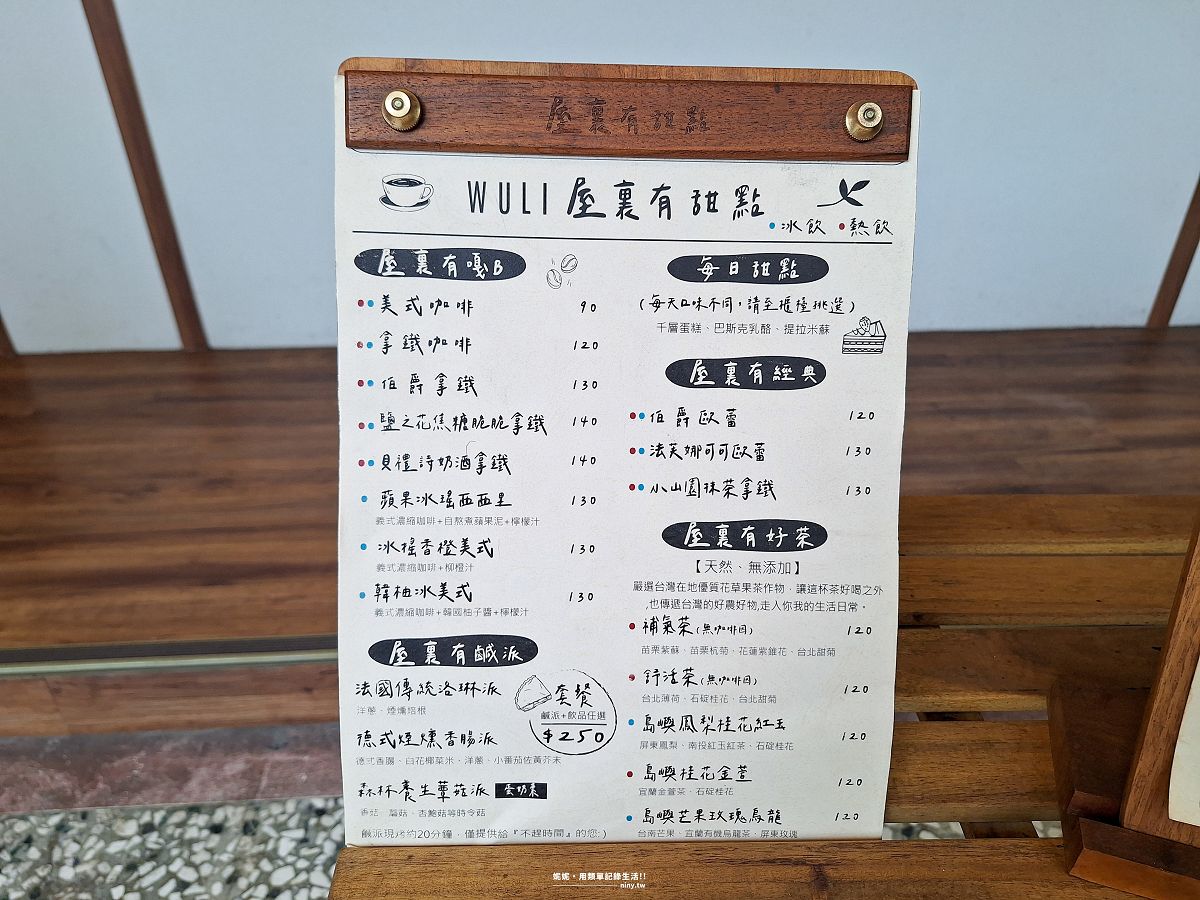 屋裏有甜點
WULI 屋裏有甜點
冰飲 熱飲
屋裏有嘎B
美式咖啡 90
拿鐵咖啡 120
伯爵拿鐵 130
鹽之花焦糖脆脆拿鐵 140
貝禮詩奶酒拿鐵 140
蘋果冰瑤西西里 130
義式濃縮咖啡+自熬煮蘋果泥+檸檬汁
冰搖香橙美式 130
義式濃縮咖啡+柳橙汁
韓柚冰美式 130
義式濃縮咖啡+韓國柚子醬+檸檬汁
屋裏有鹹派
法國傳統洛琳派
洋蔥、煙燻培根
德式煙燻香腸派
德式香腸、白花椰菜米、洋蔥、小番茄佐黃芥末
森林養生蕈菇派 蛋奶素
香菇、蘑菇、杏鮑菇等時令菇
鹹派現烤約20分鐘，僅提供給『不趕時間』的您:)
套餐
鹹派+飲品任選
$250
每日甜點
(每天口味不同，請至櫃檯挑選)
千層蛋糕、巴斯克乳酪、提拉米蘇
屋裏有經典
伯爵歐蕾 120
法芙娜可可歐蕾 130
小山園抹茶拿鐵 130
屋裏有好茶
【天然、無添加】
嚴選台灣在地優質花草果茶作物，讓這杯茶好喝之外
,也傳遞台灣的好農好物,走入你我的生活日常。
補氣茶(無咖啡因) 120
苗栗紫蘇、苗栗杭菊、花蓮紫錐花、台北甜菊
舒活茶(無咖啡因) 120
台北薄荷、石碇桂花、台北甜菊
島嶼鳳梨桂花紅玉 120
屏東鳳梨、南投紅玉紅茶、石碇桂花
島嶼桂花金萱 120
宜蘭金萱茶、石碇桂花
島嶼芒果玫瑰烏龍 120
台南芒果、宜蘭有機烏龍茶、屏東玫瑰
妮妮。用類單記錄生活!!
niny.tw